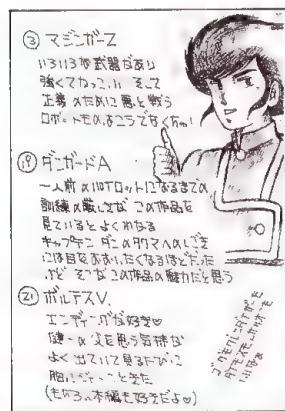 ③ マジンガーZ
いろいろな武器があり
強くてかっこいい そして
正義のために悪と戦う
ロボットものはこうでなくちゃ!
⑲ ダンガードA
一人前のパイロットになるまでの
訓練の厳しさが この作品を
見ているとよくわかる
キャプテン ダンのタクマへのしごき
には目をおおいたくなるほどだった
けど そこがこの作品の魅力だと思う
㉑ ボルテスV.
エンディングが好き♡
健一の父を思う気持が
よく出ていて見るたびに
胸にジーンときた
(もちろん本編も好きだよ♡)